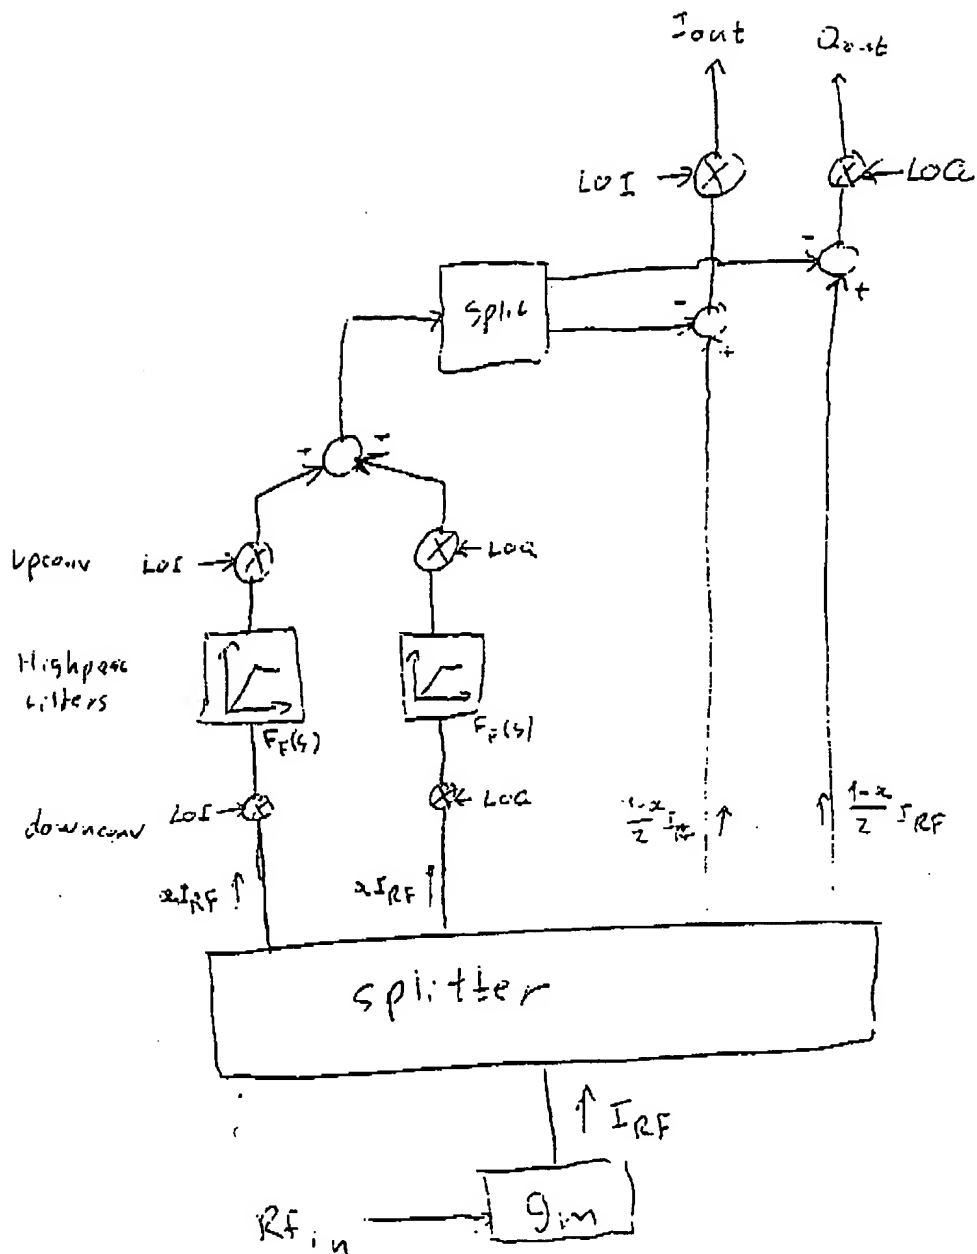 Iout Qout
LOI LOQ
- -
+
Split
- +
+ +
Upconv LOI LOQ
Highpass
filters
F_F(s) F_F(s)
downconv LOI LOQ
xI_RF xI_RF
1-x/2 I_RF 1-x/2 I_RF
splitter
I_RF
RF_in g_in